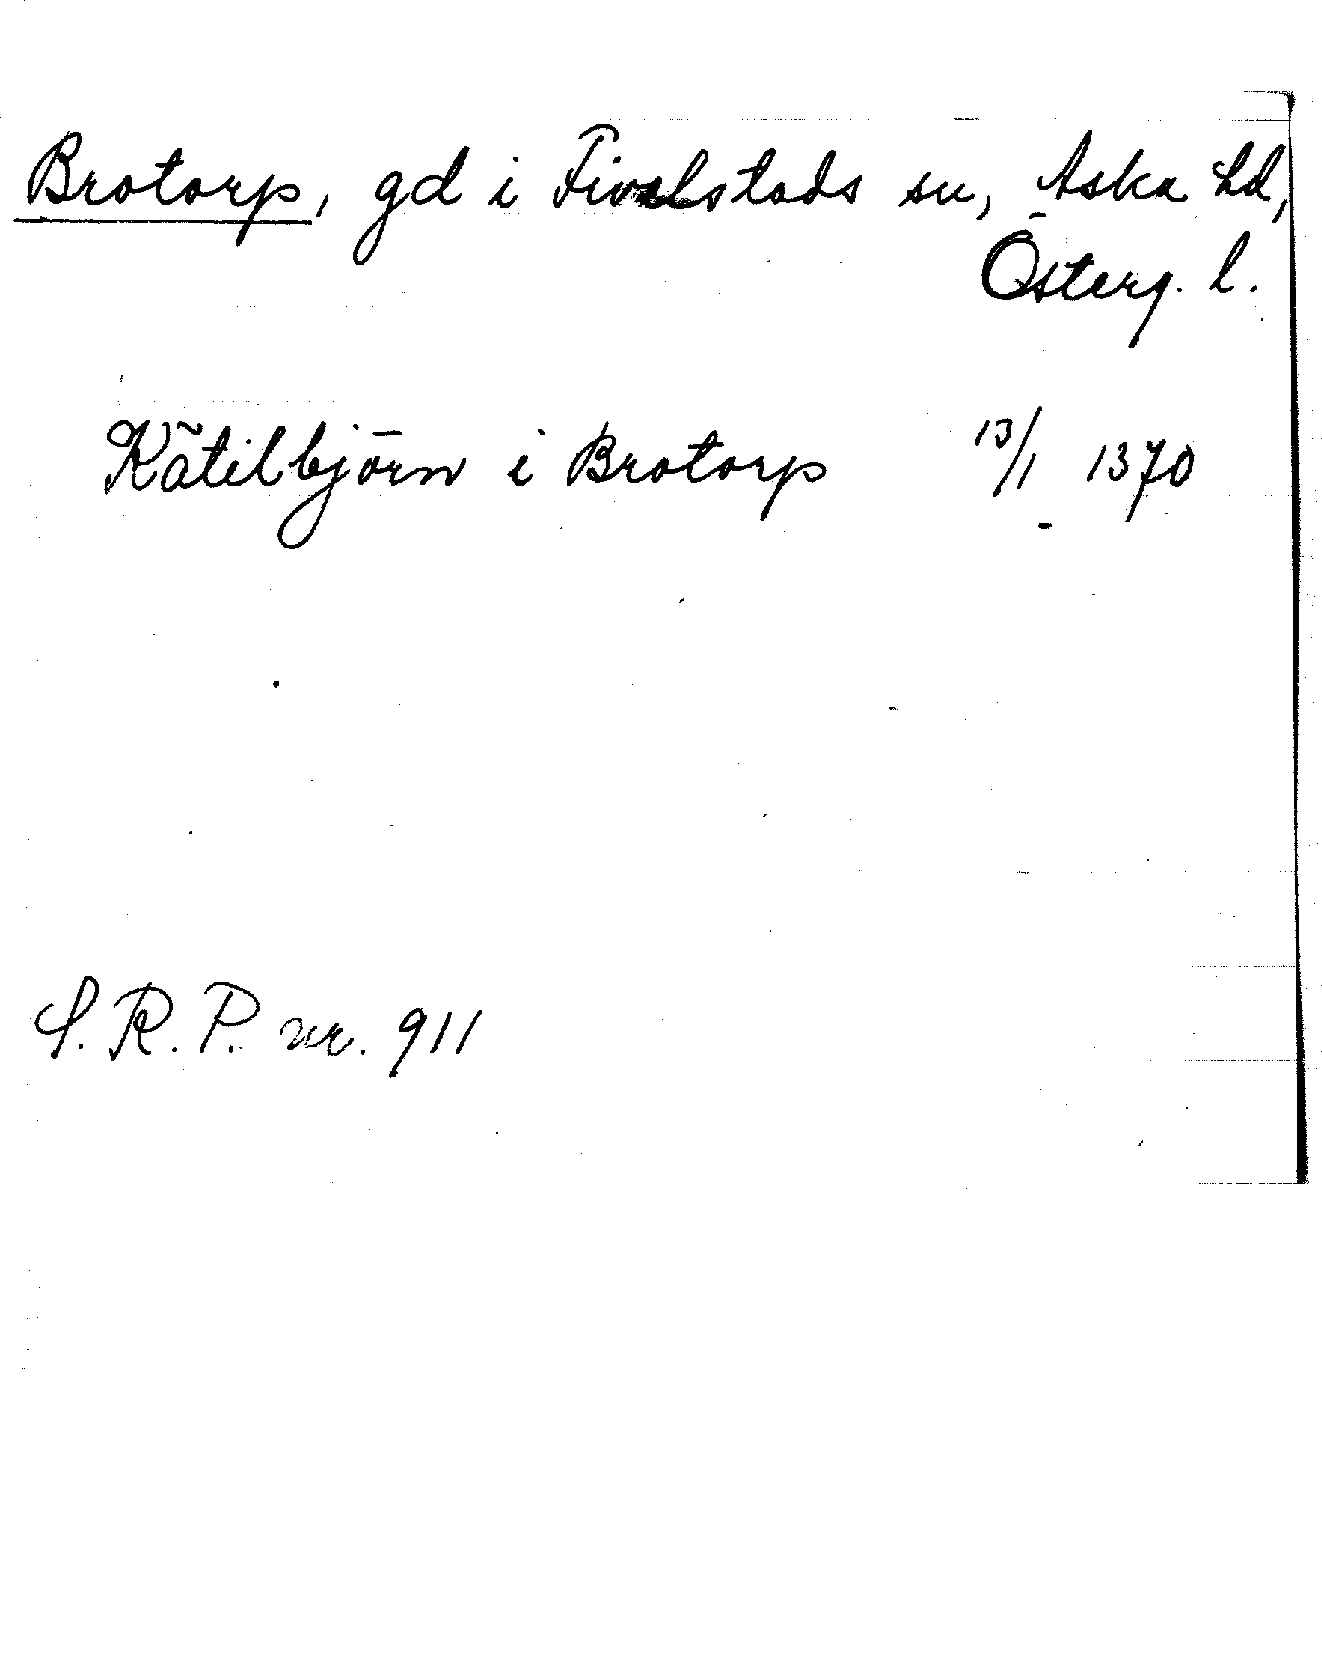 Brotorp, gd i Fivelstads sn, Aska hd,
Österg. l.
Kätilbjörn i Brotorp 13/1 1370
S. R. P. nr. 911